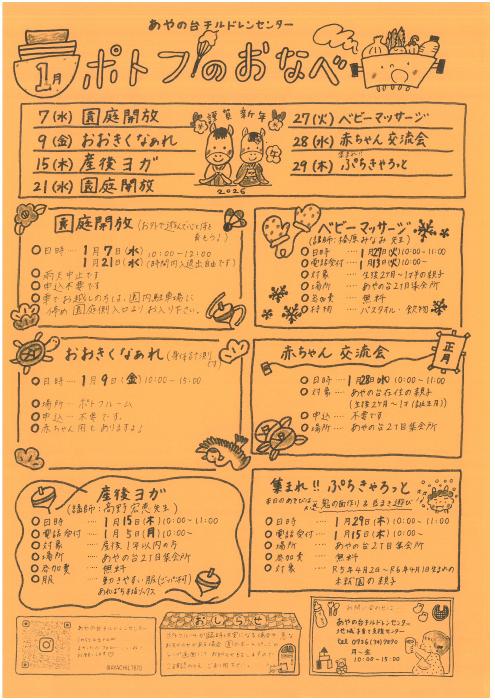 あやの台チルドレンセンター
1月 ポトフのおなべ
7(水) 園庭開放
9(金) おおきくなぁれ
15(木) 産後ヨガ
21(水) 園庭開放
謹賀新年
2026
27(火) ベビーマッサージ
28(水) 赤ちゃん交流会
集まれ!!
29(木) ぷちきゃろっと
園庭開放
日時… 1月7日(水) 10:00~12:00
1月21日(水) (時間内入退出自由です)
雨天中止です
申込不要です
車でお越しの方は、園内駐車場に
停め園庭側入口よりお入り下さい。
ベビーマッサージ
日時 … 1月27日(火) 10:00~11:00
電話受付… 1月13日(火) 10:00~
対象 … 生後2ケ月~1才の親子
場所 … あやの台2丁目集会所
参加費 … 無料
持物 … バスタオル・飲物
おおきくなぁれ (身体計測です)
日時… 1月9日(金) 10:00~15:00
場所… ポトフルーム
申込… 不要です。
赤ちゃん用もありますよ♪
赤ちゃん交流会
正月
日時… 1月28日(水) 10:00~11:00
対象… あやの台在住の親子
申込… 不要です
場所… あやの台2丁目集会所
産後ヨガ
日時 … 1月15日(木) 10:00~11:00
電話受付… 1月5日(月) 10:00~
対象 … 産後1年以内の方
場所 … あやの台2丁目集会所
参加費 … 無料
服 … 動きやすい服
集まれ!! ぷちきゃろっと
日時 … 1月29日(木) 10:00~11:00
電話受付… 1月15日(木) 10:00~
場所 … あやの台2丁目集会所
参加費 … 無料
対象 … R5年4月2日~R6年4月1日生まれの
未就園の親子
あやの台チルドレンセンター
@AYACHIL7870
おしらせ
お問い合わせ
あやの台チルドレンセンター
地域子育て支援センター
tel 0736(34)7870
月~金
10:00~15:00